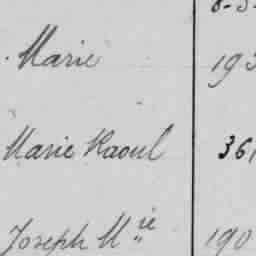 8-3-
Marie 193
Marie Raoul 361
Joseph M.ie 190